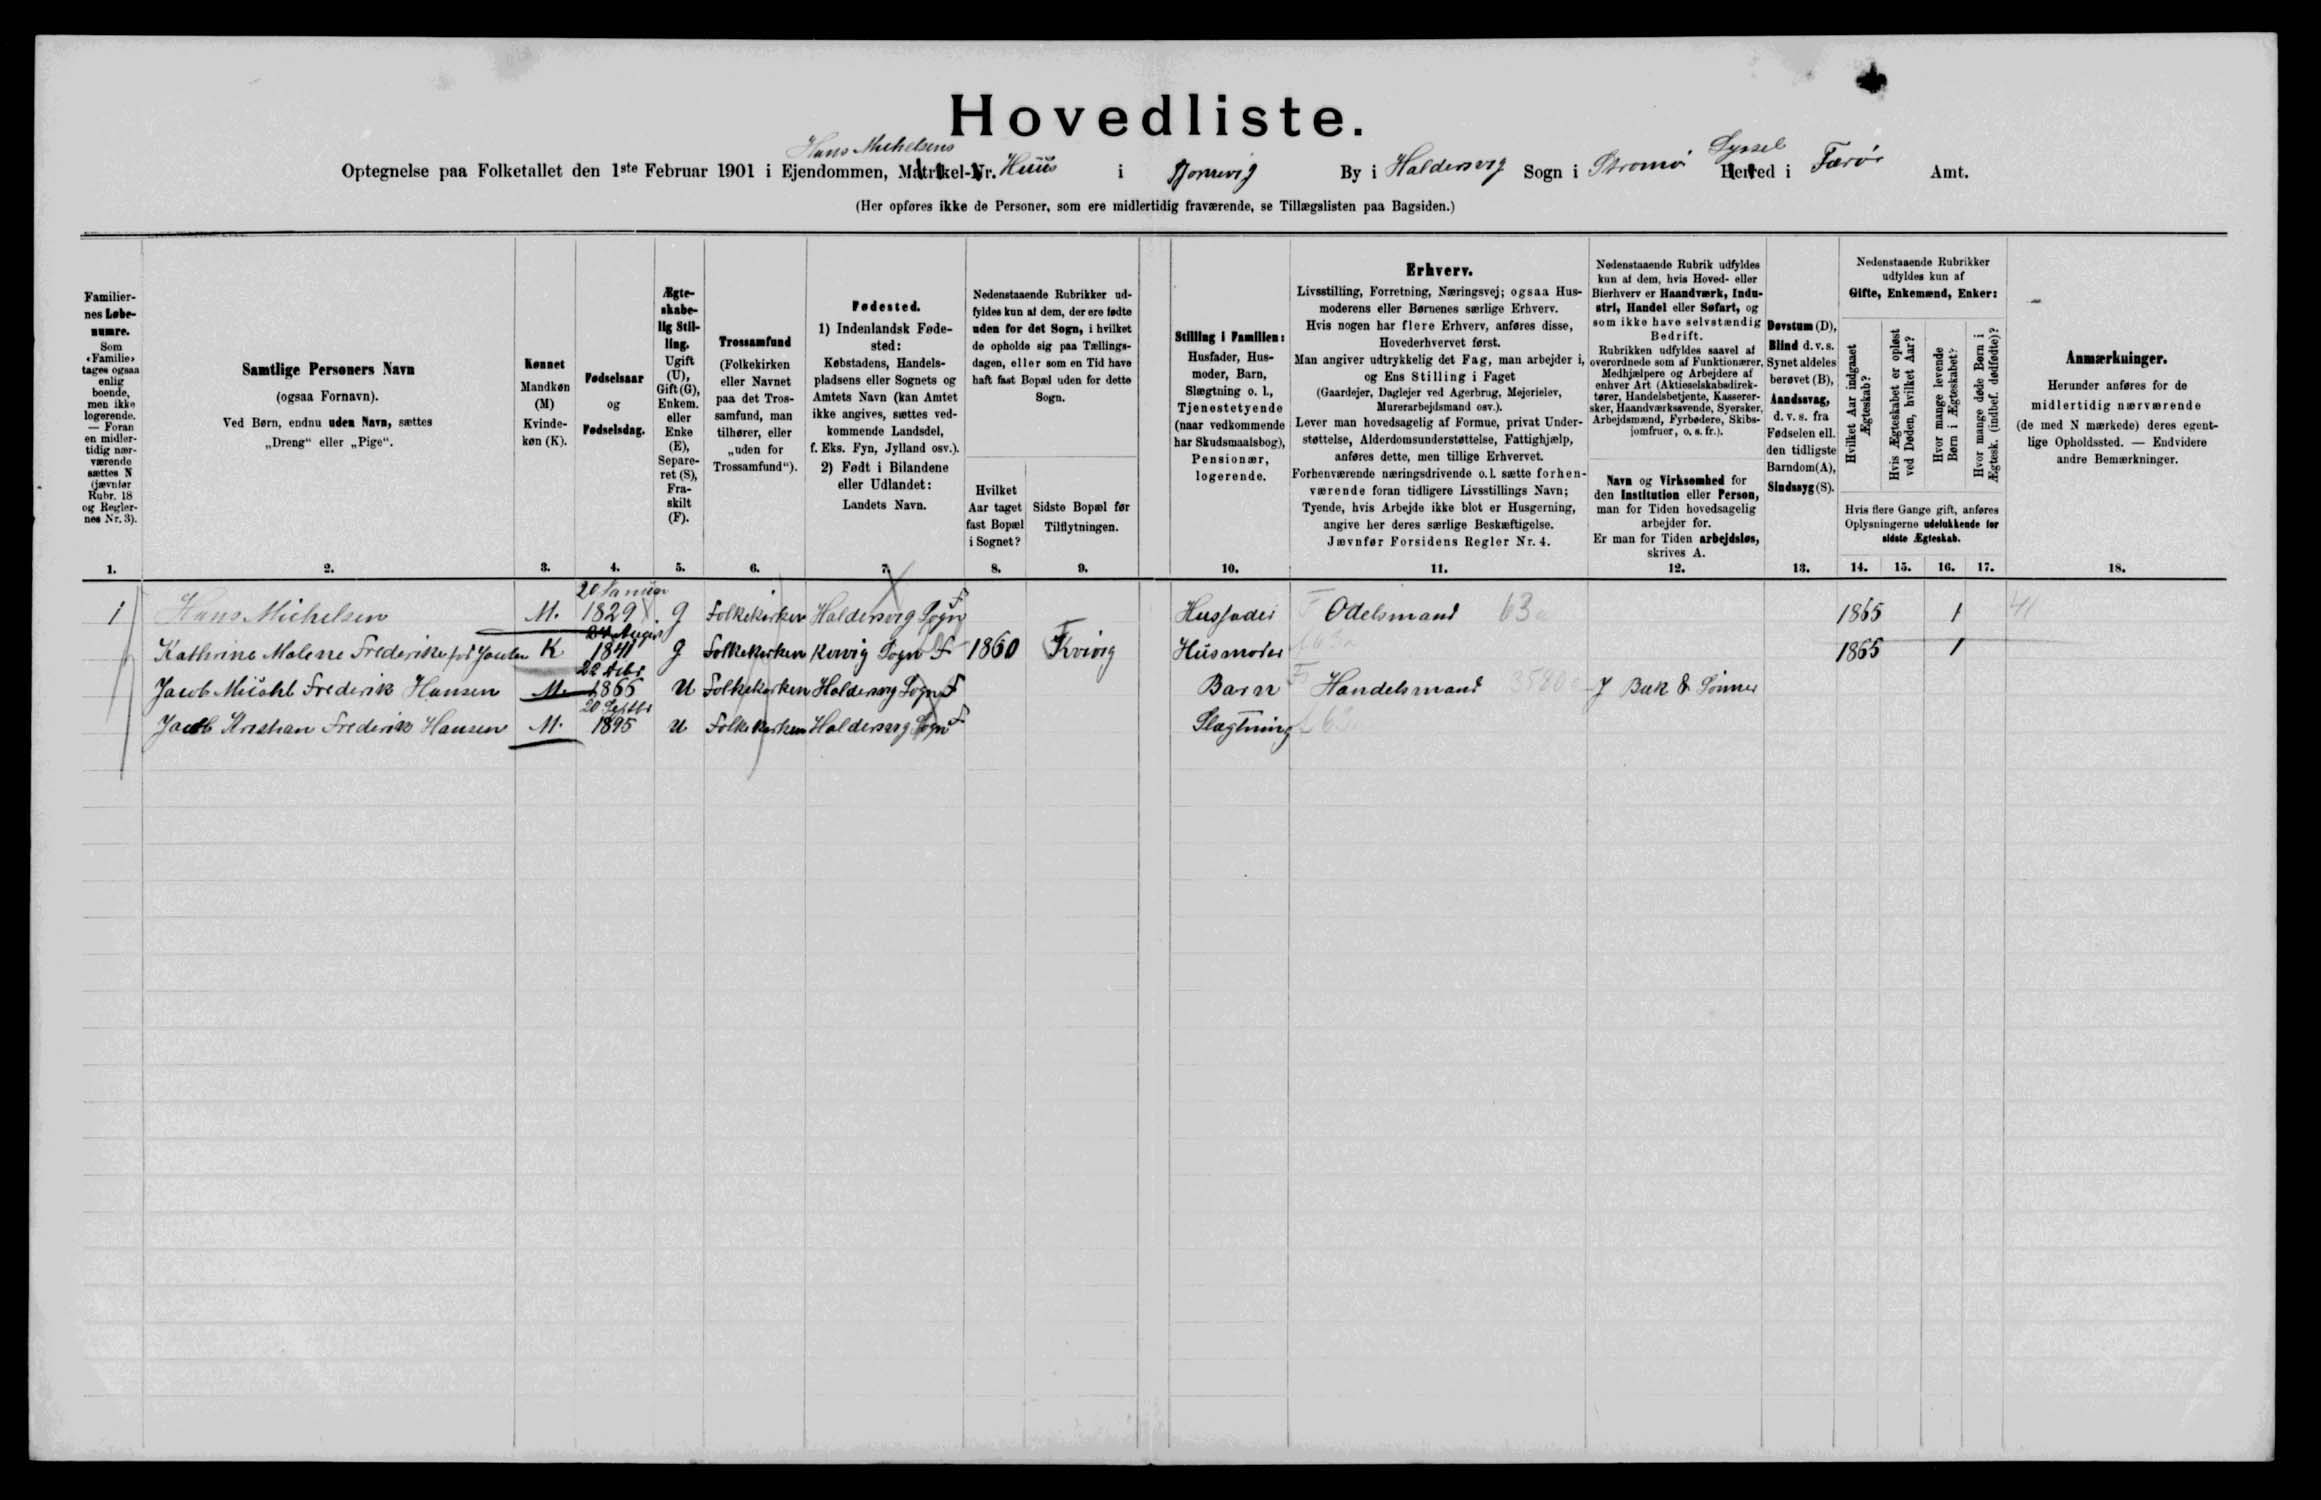 Hovedliste.
Hans Michelsens
Syssel
Optegnelse paa Folketallet den 1ste Februar 1901 i Ejendommen, Matrikel-Nr. Huus i Tjørnevig By i Haldersvig Sogn i Strømø Herred i Færø Amt.
(Her opføres ikke de Personer, som ere midlertidig fraværende, se Tillægslisten paa Bagsiden.)
Familier-
nes Løbe-
numre.
Som
«Familie»
tages ogsaa
enlig
boende,
men ikke
logerende.
— Foran
en midler-
tidig nær-
værende
sættes N
(jævnfør
Rubr. 18
og Regler-
nes Nr. 3).
1.
Samtlige Personers Navn
(ogsaa Fornavn).
Ved Børn, endnu uden Navn, sættes
„Dreng“ eller „Pige“.
2.
Kønnet
Mandkøn
(M)
Kvinde-
køn (K).
3.
Fødselsaar
og
Fødselsdag.
4.
Ægte-
skabe-
lig Stil-
ling.
Ugift
(U),
Gift (G),
Enkem.
eller
Enke
(E),
Separe-
ret (S),
Fra-
skilt
(F).
5.
Trossamfund
(Folkekirken
eller Navnet
paa det Tros-
samfund, man
tilhører, eller
„uden for
Trossamfund“).
6.
Fødested.
1) Indenlandsk Føde-
sted:
Købstadens, Handels-
pladsens eller Sognets og
Amtets Navn (kan Amtet
ikke angives, sættes ved-
kommende Landsdel,
f. Eks. Fyn, Jylland osv.).
2) Født i Bilandene
eller Udlandet:
Landets Navn.
7.
Nedenstaaende Rubrikker ud-
fyldes kun af dem, der ere fødte
uden for det Sogn, i hvilket
de opholde sig paa Tællings-
dagen, eller som en Tid have
haft fast Bopæl uden for dette
Sogn.
Hvilket
Aar taget
fast Bopæl
i Sognet?
8.
Sidste Bopæl før
Tilflytningen.
9.
Stilling i Familien:
Husfader, Hus-
moder, Barn,
Slægtning o. l.,
Tjenestetyende
(naar vedkommende
har Skudsmaalsbog),
Pensionær,
logerende.
10.
Erhverv.
Livsstilling, Forretning, Næringsvej; ogsaa Hus-
moderens eller Børnenes særlige Erhverv.
Hvis nogen har flere Erhverv, anføres disse,
Hovederhvervet først.
Man angiver udtrykkelig det Fag, man arbejder i,
og Ens Stilling i Faget
(Gaardejer, Daglejer ved Agerbrug, Mejerielev,
Murerarbejdsmand osv.).
Lever man hovedsagelig af Formue, privat Under-
støttelse, Alderdomsunderstøttelse, Fattighjælp,
anføres dette, men tillige Erhvervet.
Forhenværende næringsdrivende o. l. sætte forhen-
værende foran tidligere Livsstillings Navn;
Tyende, hvis Arbejde ikke blot er Husgerning,
angive her deres særlige Beskæftigelse.
Jævnfør Forsidens Regler Nr. 4.
11.
Nedenstaaende Rubrik udfyldes
kun af dem, hvis Hoved- eller
Bierhverv er Haandværk, Indu-
stri, Handel eller Søfart, og
som ikke have selvstændig
Bedrift.
Rubrikken udfyldes saavel af
overordnede som af Funktionærer,
Medhjælpere og Arbejdere af
enhver Art (Aktieselskabsdirek-
tører, Handelsbetjente, Kasserer-
sker, Haandværkssvende, Syersker,
Arbejdsmænd, Fyrbødere, Skibs-
jomfruer, o. s. fr.).
Navn og Virksomhed for
den Institution eller Person,
man for Tiden hovedsagelig
arbejder for.
Er man for Tiden arbejdsløs,
skrives A.
12.
Døvstum (D),
Blind d. v. s.
Synet aldeles
berøvet (B),
Aandssvag,
d. v. s. fra
Fødselen ell.
den tidligste
Barndom (A),
Sindssyg (S).
13.
Nedenstaaende Rubrikker
udfyldes kun af
Gifte, Enkemænd, Enker:
Hvilket Aar indgaaet
Ægteskab?
Hvis Ægteskabet er opløst
ved Døden, hvilket Aar?
Hvor mange levende
Børn i Ægteskabet?
Hvor mange døde Børn i
Ægtesk. (indbef. dødfødte)?
Hvis flere Gange gift, anføres
Oplysningerne udelukkende for
sidste Ægteskab.
14. 15. 16. 17.
Anmærkninger.
Herunder anføres for de
midlertidig nærværende
(de med N mærkede) deres egent-
lige Opholdssted. — Endvidere
andre Bemærkninger.
18.
20 Januar
1 Hans Michelsen M. 1829 G Folkekirken Haldersvig Sogn F Husfader F Odelsmand 63a 1865 1 41
24 August
Kathrine Malene Frederikke K 1841 G Folkekirken Kvivig Sogn F 1860 Kvivig Husmoder 1865 1
22 Decbr
Jacob Micahl Frederik Hansen M. 1866 U Folkekirken Haldersvig Sogn F Barn F Handelsmand J Bæk & Sønner
20 Septbr
Jacob Kristian Frederik Hansen M. 1895 U Folkekirken Haldersvig Sogn F Slægtning